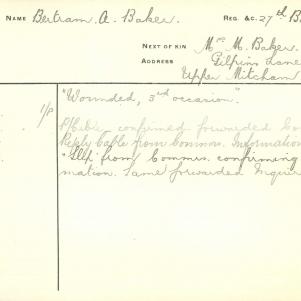 NAME Bertram. A. Baker. REG. &C. 27th B
NEXT OF KIN Mrs M. Baker.
ADDRESS Gilpins Lane
Upper Mitcham
"Wounded, 3rd occasion".
1/P confirmed forwarded
Reply Cable from Commrs. Information
from Commrs. confirming
mation. Same forwarded Inquir